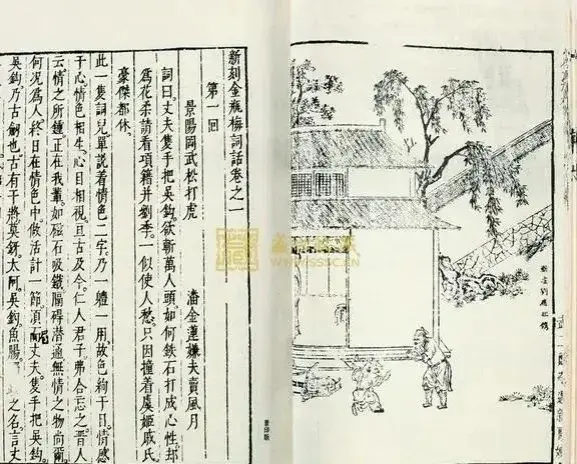 新刻金瓶梅詞話卷之一
第一回
景陽岡武松打虎 潘金蓮嫌夫賣風月
詞曰丈夫隻手把吳鈎欲斬萬人頭如何鉄石打成心性却
爲花柔請看項籍并劉季一似使人愁只因撞着虞姬戚氏
豪傑都休
此一隻詞兒单說着情色二字乃一體一用故色絢于目情感
于心情色相生心目相視亘古及今仁人君子弗合忘之晋人
云情之所鍾正在我輩如磁石吸鉄隔碍潜通無情之物尚爾
何况爲人終日在情色中做活計一節須丈夫隻手把吳鈎
吳鈎乃古劍也古有干將莫鋣太阿吳鈎魚腸 之名言丈
新安劉應祖鐫
WWW.SSSC.CN